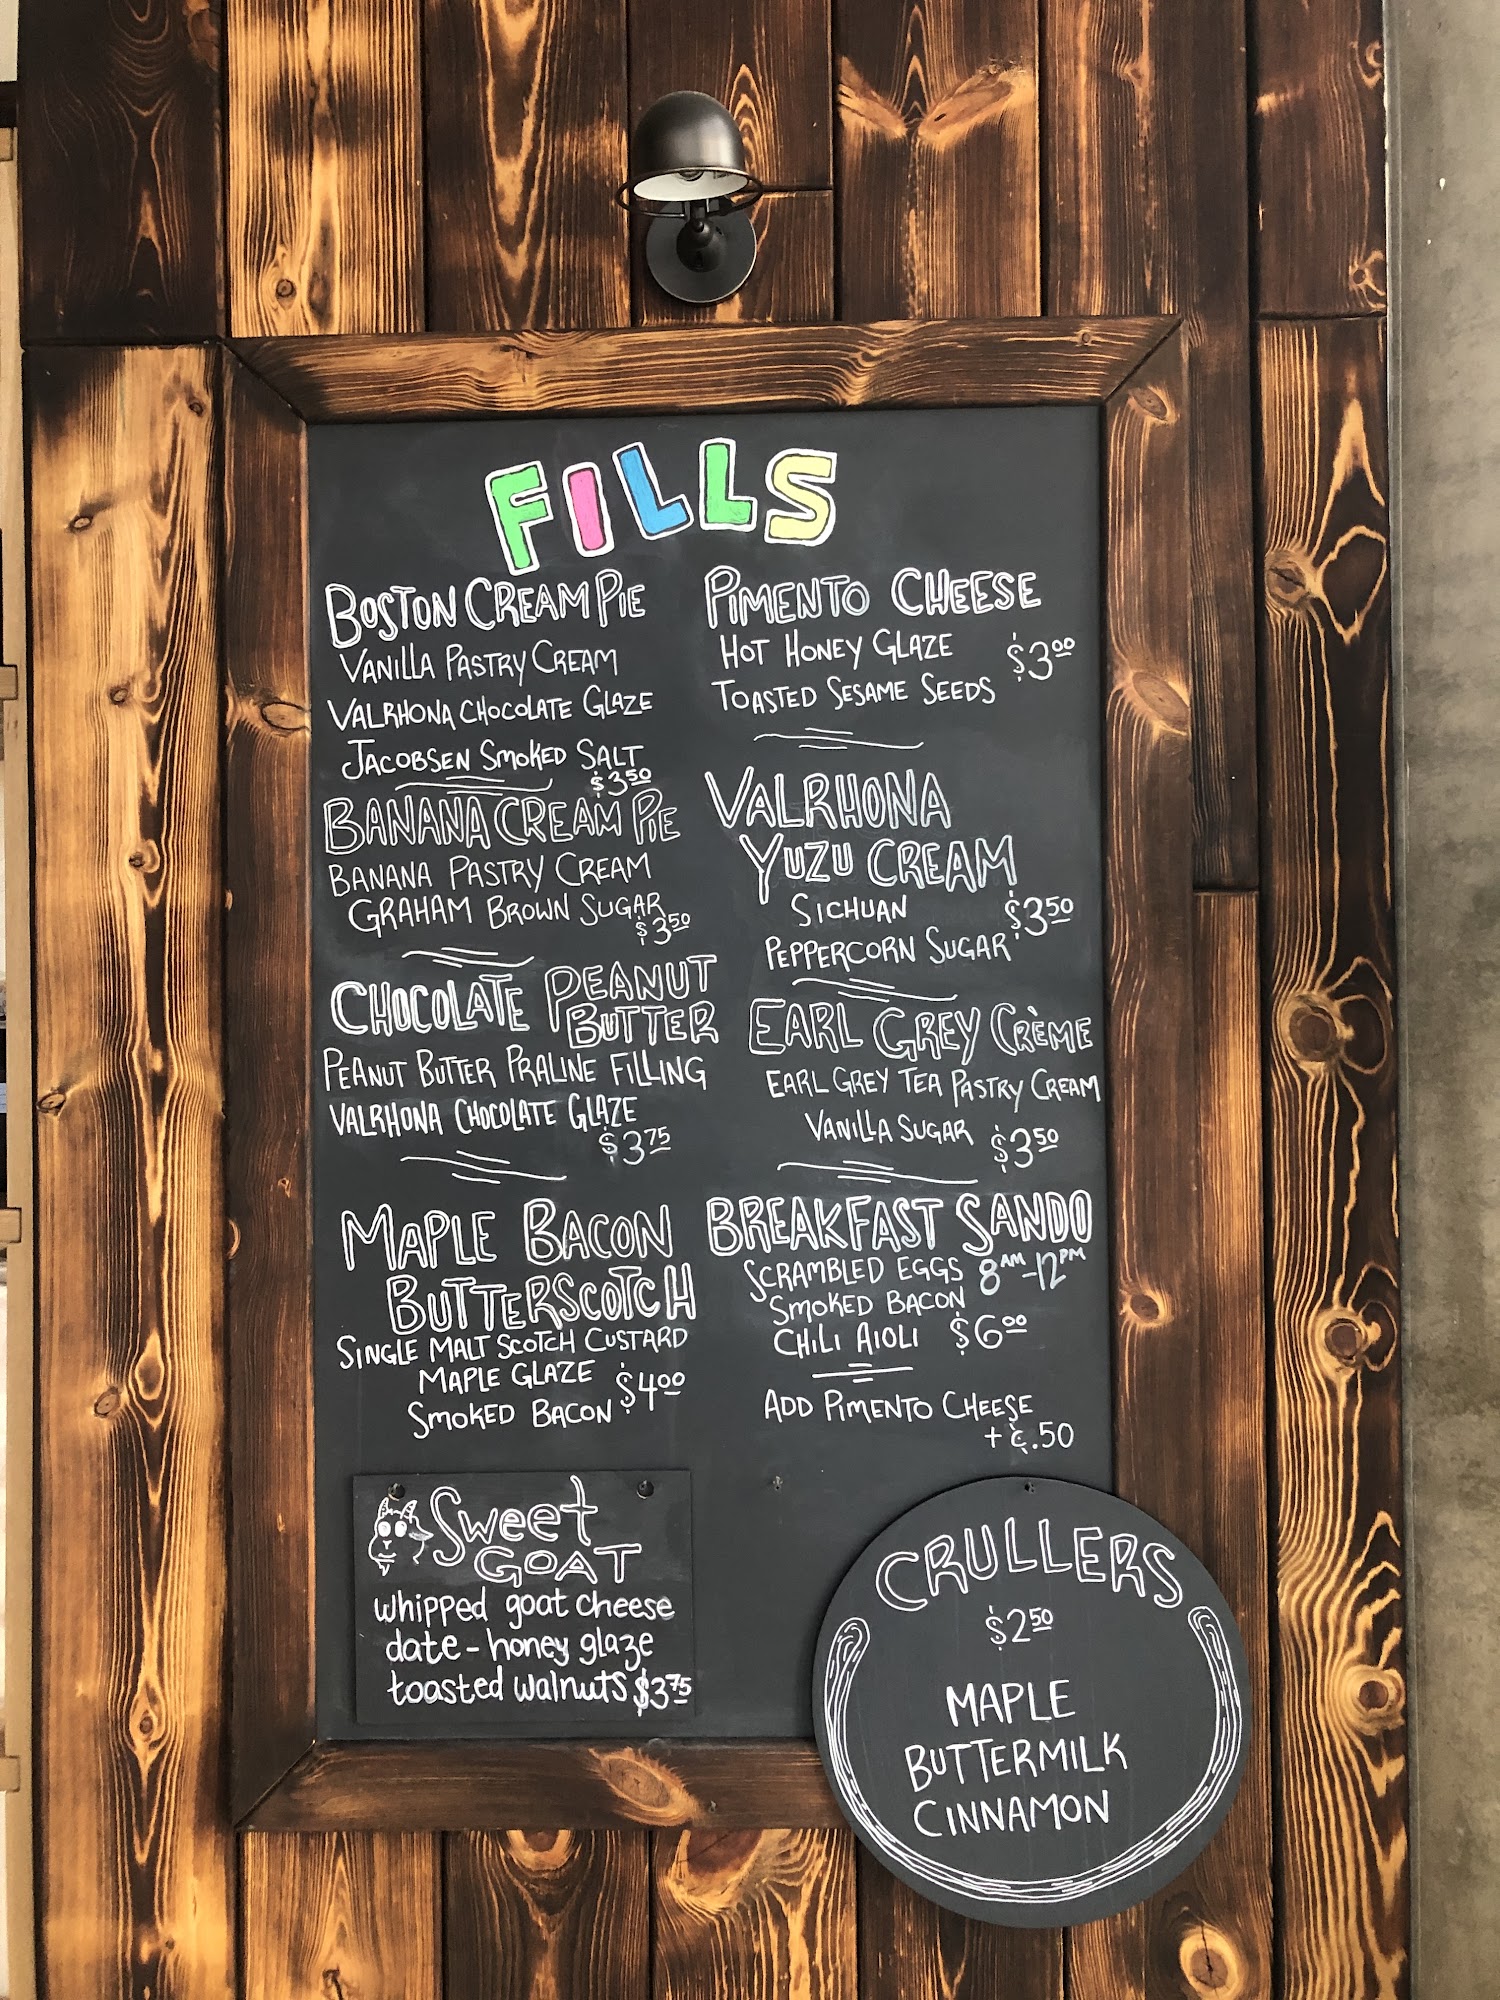 FILLS
BOSTON CREAM PIE
VANILLA PASTRY CREAM
VALRHONA CHOCOLATE GLAZE
JACOBSEN SMOKED SALT
$3.50
BANANA CREAM PIE
BANANA PASTRY CREAM
GRAHAM BROWN SUGAR
$3.50
CHOCOLATE PEANUT
BUTTER
PEANUT BUTTER PRALINE FILLING
VALRHONA CHOCOLATE GLAZE
$3.75
MAPLE BACON
BUTTERSCOTCH
SINGLE MALT SCOTCH CUSTARD
MAPLE GLAZE $4.00
SMOKED BACON
PIMENTO CHEESE
HOT HONEY GLAZE $3.00
TOASTED SESAME SEEDS
VALRHONA
YUZU CREAM
SICHUAN $3.50
PEPPERCORN SUGAR
EARL GREY CRÈME
EARL GREY TEA PASTRY CREAM
VANILLA SUGAR $3.50
BREAKFAST SANDO
SCRAMBLED EGGS 8AM-12PM
SMOKED BACON
CHILI AIOLI $6.00
ADD PIMENTO CHEESE
+ ¢.50
Sweet
GOAT
whipped goat cheese
date - honey glaze
toasted walnuts $3.75
CRULLERS
$2.50
MAPLE
BUTTERMILK
CINNAMON